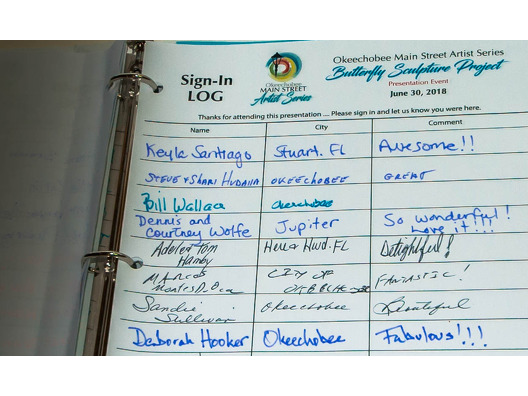 Okeechobee Main Street Artist Series
Butterfly Sculpture Project
Presentation Event
June 30, 2018
Sign-In
LOG
Okeechobee
MAIN STREET
Artist Series
Thanks for attending this presentation ... Please sign in and let us know you were here.
Name City Comment
Keyla Santiago Stuart. FL Awesome!!
STEVE & SHARI HUDAHA OKEECHOBEE GREAT
Bill Wallace Okeechobee
Dennis and
Courtney Wolfe Jupiter So wonderful!
Love it!...
Adele & Tom
Hamby FL Delightful!
MARCOS
Montes D. Oca CITY OF
OKEECHOBEE FANTASTIC!
Sandie
Sullivan Okeechobee Beautiful
Deborah Hooker Okeechobee Fabulous!!!